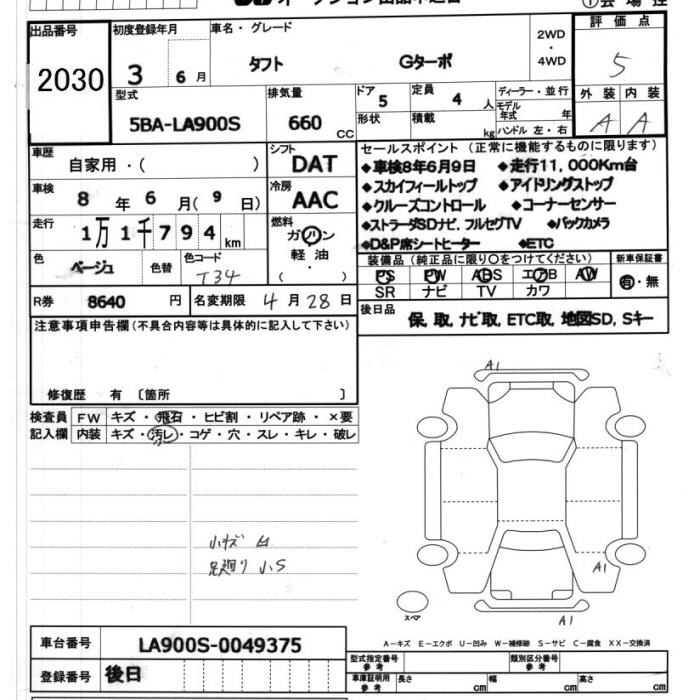 オークション出品申込書
出品番号 2030
初度登録年月 3 6月
車名・グレード タフト Gターボ
2WD・4WD
評価点 5
外装 内装
A A
型式 5BA-LA900S
排気量 660 CC
ドア 5
定員 4 人
形状
積載 kg
ディーラー・並行
モデル年式 年
ハンドル 左・右
車歴 自家用・( )
シフト DAT
車検 8年6月(9日)
冷房 AAC
走行 1万1千794km
燃料 ガソリン
軽油
・
( )
色 ベージュ 色替
色コード T34
R券 8640円
名変期限 4月28日
セールスポイント (正常に機能するものに限ります)
◆車検8年6月9日 ◆走行11,000Km台
◆スカイフィールトップ ◆アイドリングストップ
◆クルーズコントロール ◆コーナーセンサー
◆ストラーダSDナビ,フルセグTV ◆バックカメラ
◆D&P席シートヒーター ◆ETC
装備品(純正品に限り○をつけてください)
PS PW ABS エアB AW
SR ナビ TV カワ
新車保証書
有・無
後日品 保,取,ナビ取,ETC取,地図SD,Sキー
注意事項申告欄(不具合内容等は具体的に記入して下さい)
修復歴 有 〔箇所 〕
検査員記入欄
FW キズ・飛石・ヒビ割・リペア跡・×要
内装 キズ・汚レ・コゲ・穴・スレ・キレ・破レ
小キズ
足廻り小S
A1
A1
A1
スペア
A-キズ E-エクボ U-凹み W-補修跡 S-サビ C-腐食 XX-交換済
車台番号 LA900S-0049375
登録番号 後日
型式指定番号 参考
類別区分番号 参考
車庫証明用 参考
長さ cm 幅 cm 高さ cm